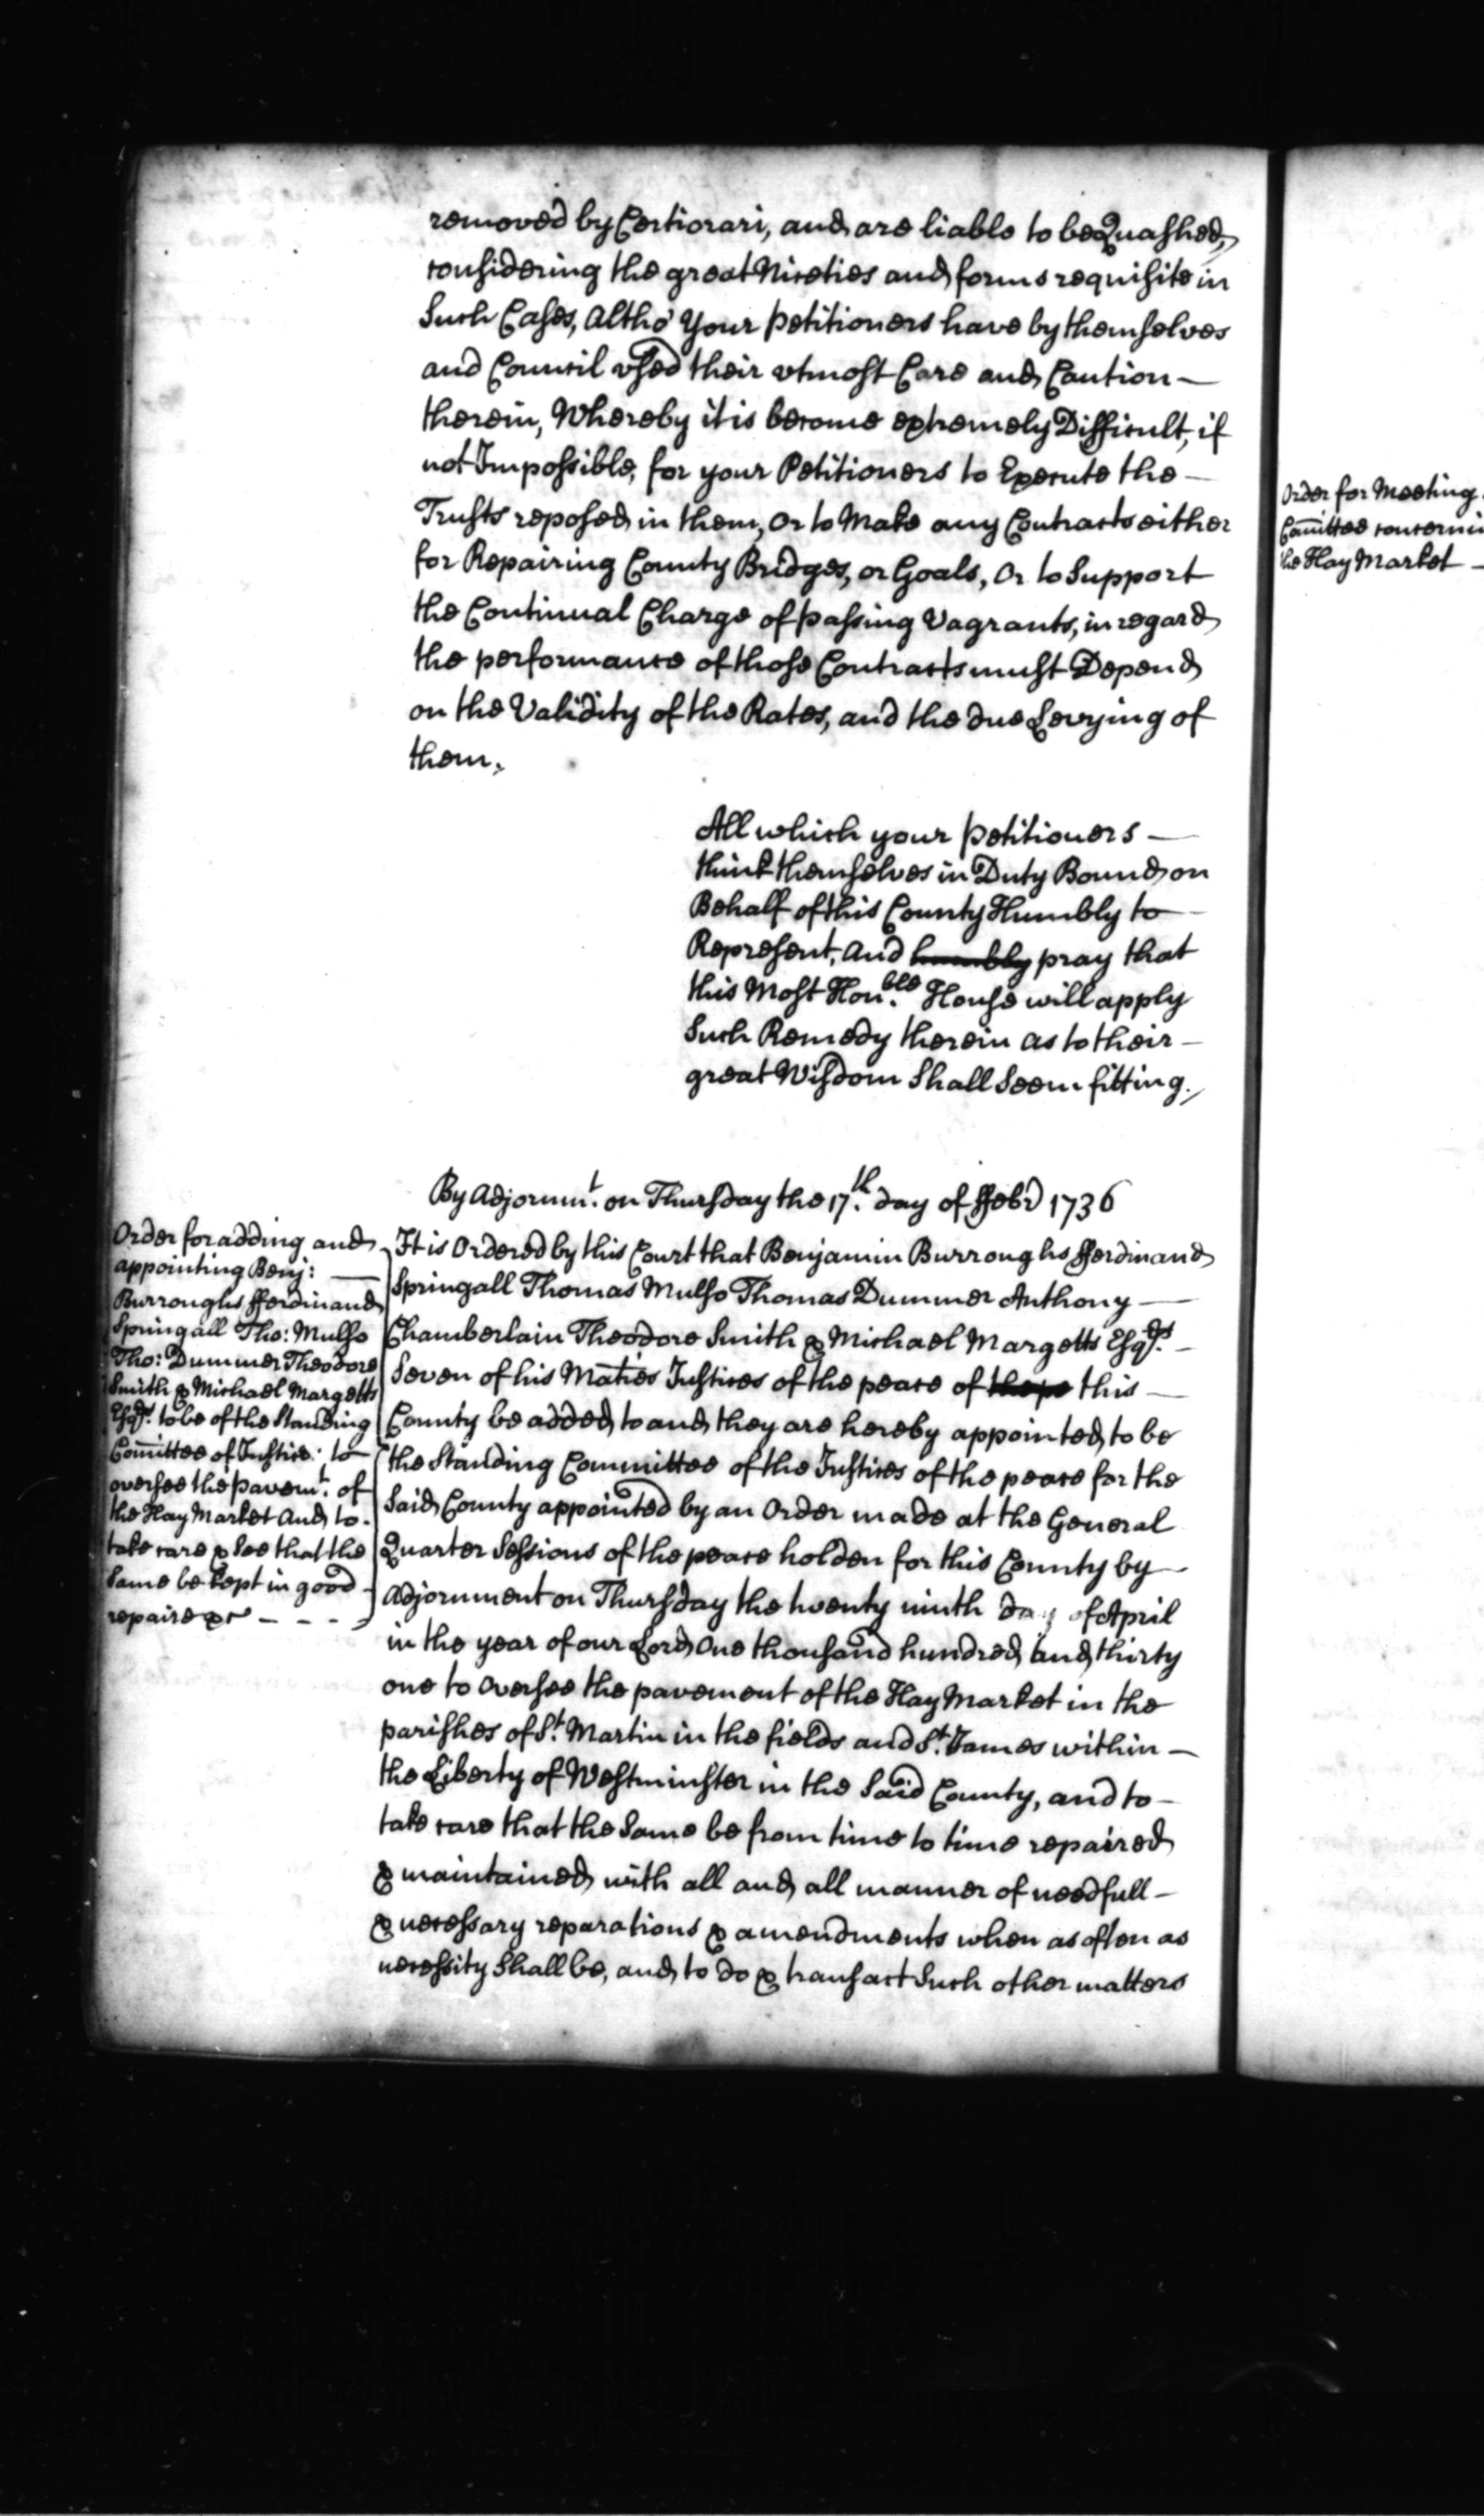 removed by Certiorari, and are liable to be Quashed,
considering the great Niceties and forms requisite in
Such Cases, altho' Your petitioners have by themselves
and Council vsed their vtmost Care and Caution —
therein, Whereby it is become extremely Difficult, if
not Impossible, for your Petitioners to Execute the —
Trusts reposed in them, or to Make any Contracts either
for Repairing County Bridges, or Goals, or to Support
the Continual Charge of passing Vagrants, in regard
the performance of those Contracts must Depend
on the Validity of the Rates, and the due Levying of
them.
All which your petitioners —
think themselves in Duty Bound on
Behalf of this County Humbly to —
Represent, and humbly pray that
this Most Hon.ble House will apply
Such Remedy therein as to their —
great Wisdom Shall Seem fitting./
By Adjornm.t on Thursday the 17.th day of ffebr̃ 1736
Order for adding and
appointing Benj: —
Burroughs fferdinand
Springall Tho: Mulso
Tho: Dummer Theodore
Smith & Michael Margetts
Esq.rs to be of the Standing
Com̃ittee of Justice: to
oversee the pavem.t of
the Hay Market And to.
take care & See that the
Same be kept in good -
repaire &c - - - -
It is Ordered by this Court that Benjamin Burroughs fferdinand
Springall Thomas Mulso Thomas Dummer Anthony —
Chamberlain Theodore Smith & Michael Margetts Esq.rs —
Seven of his Maties Justices of the peace of the pe this —
County be added to and they are hereby appointed to be
the Standing Committee of the Justices of the peace for the
Said County appointed by an Order made at the General
Quarter Sessions of the peace holden for this County by —
adjornment on Thursday the twenty ninth day of April
in the year of our Lord One thousand hundred and thirty
one to oversee the pavement of the Hay Market in the
parishes of S.t Martin in the fields and S.t James within —
the Liberty of Westminster in the Said County, and to —
take care that the Same be from time to time repaired
& maintained with all and all manner of needfull —
& necessary reparations & amendments when as often as
necessity Shall be, and to do & transact Such other matters
Order for Meeting
Com̃ittee concerni
the Hay Market —